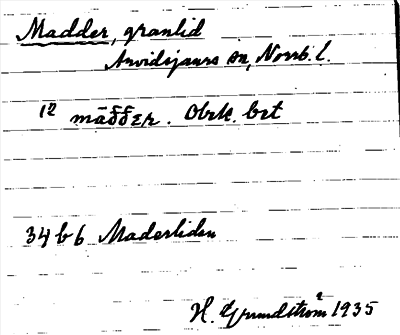 Madder, granlid
Arvidsjaurs sn, Norrb. l.
12 māδδεr. Obek. bet
34 b 6 Maderliden
H. Grundström 1935